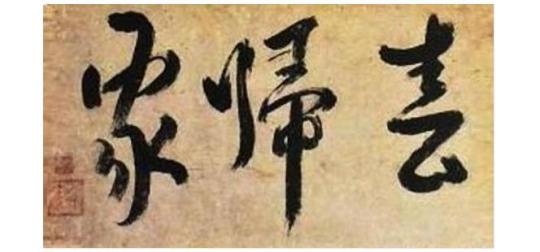 喜歸家